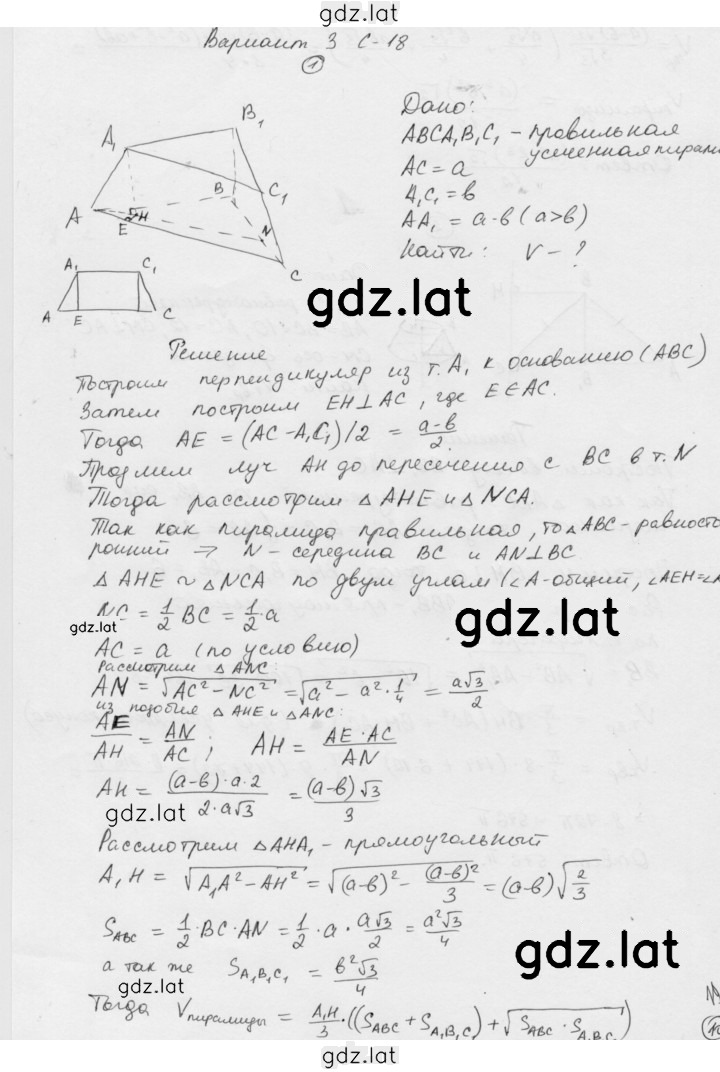 gdz.lat
Вариант 3 С-18
1
B₁
A₁
B
C₁
A
E
H
N
C
A₁ C₁
A E C
Дано:
ABCA₁B₁C₁ – правильная
усеченная пирами
AC = a
A₁C₁ = в
AA₁ = a-в (a>в)
Найти: V – ?
gdz.lat
Решение
Построим перпендикуляр из т. A₁ к основанию (ABC)
Затем построим EH⊥AC, где E∈AC.
Тогда AE = (AC - A₁C₁)/2 = (a-в)/2
Продлим луч AH до пересечения с BC в т. N
Тогда рассмотрим △AHE и △NCA.
Так как пирамида правильная, то △ABC – равносто
ронний ⇒ N – середина BC и AN⊥BC
△AHE ~ △NCA по двум углам (∠A-общий, ∠AEH=∠A
NC = 1/2 BC = 1/2·a
gdz.lat
gdz.lat
AC = a (по условию)
Рассмотрим △ANC
AN = √(AC² - NC²) = √(a² - a²·1/4) = a√3/2
из подобия △AHE и △ANC:
AE/AH = AN/AC; AH = AE·AC/AN
AH = (a-в)·a·2/2·a√3 = (a-в)√3/3
gdz.lat
Рассмотрим △AHA₁ – прямоугольный
A₁H = √(A₁A² - AH²) = √((a-в)² - (a-в)²/3) = (a-в)√(2/3)
S_ABC = 1/2·BC·AN = 1/2·a·a√3/2 = a²√3/4
gdz.lat
а так же S_A₁B₁C₁ = в²√3/4
gdz.lat
Тогда V_пирамиды = A₁H/3·((S_ABC + S_A₁B₁C₁) + √(S_ABC·S_A₁B₁C₁))
gdz.lat